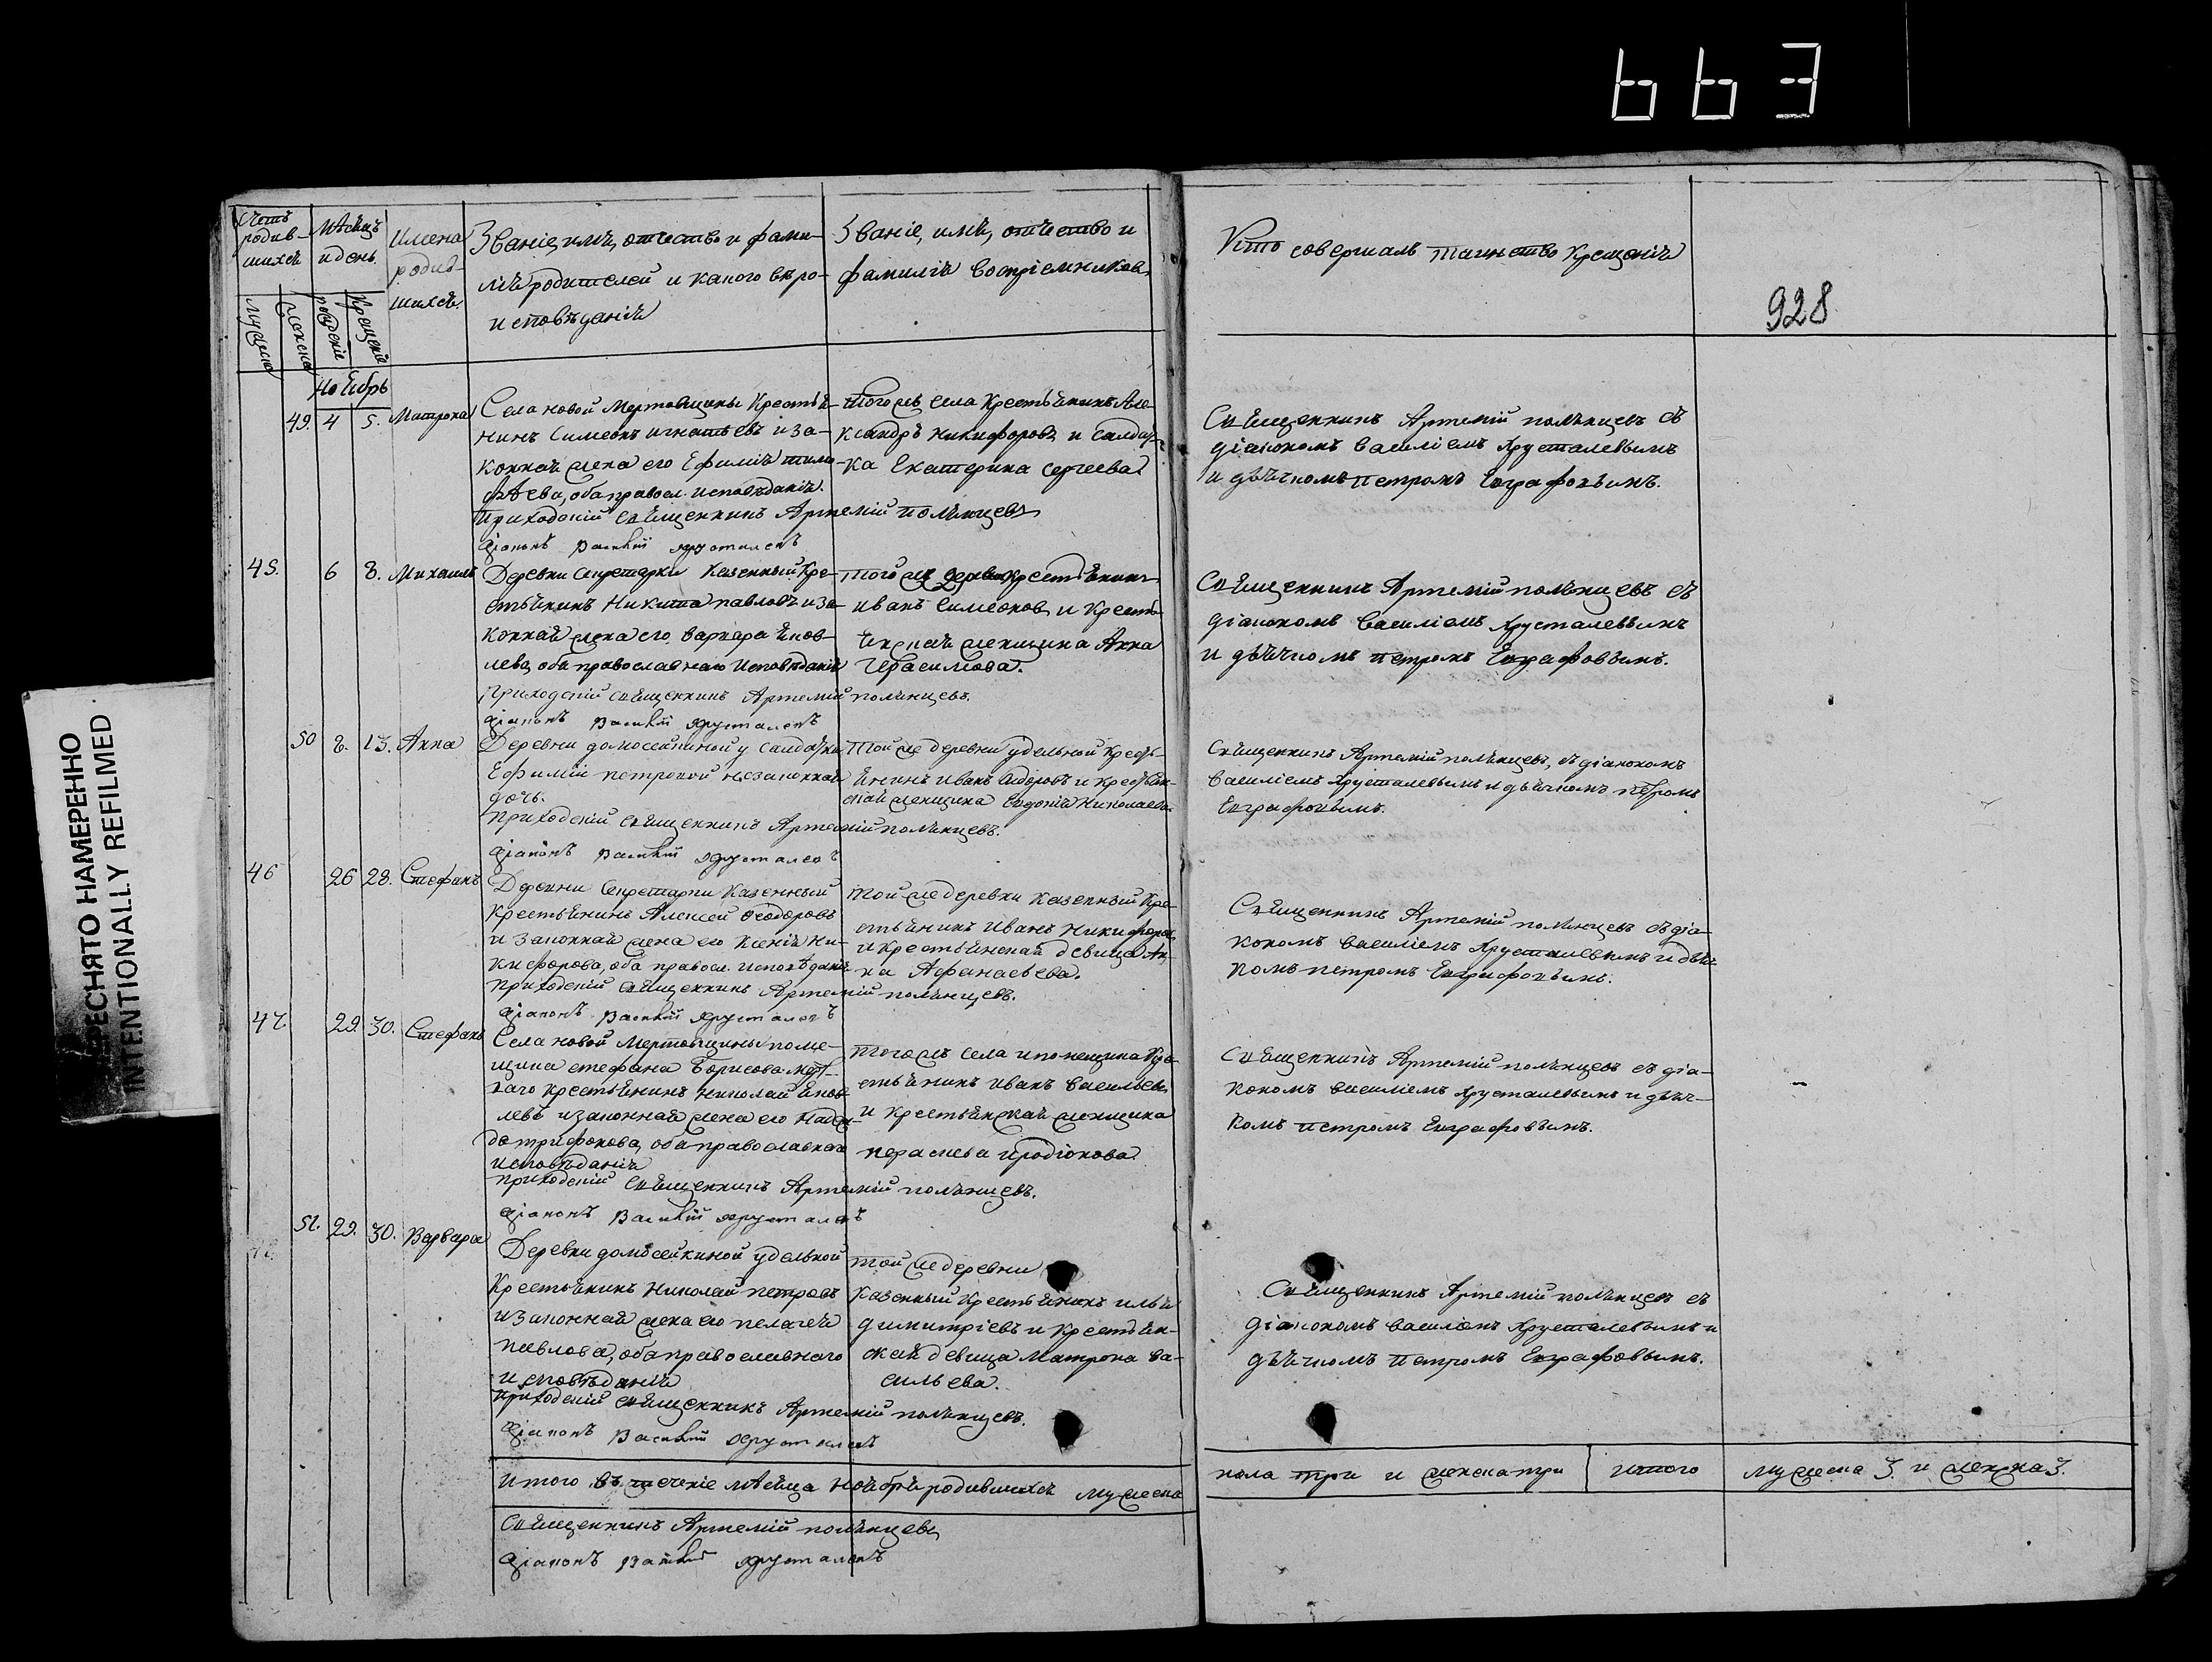 663
ПЕРЕСНЯТО НАМЕРЕННО
INTENTIONALLY REFILMED
928
Счетъ родив-шихся
мужеска
женска
Мѣсяцъ и день
рожденіе
крещеніе
Имена родив-шихся.
Званіе, имя, отчество и фами-
лія родителей и какого вѣро-
исповѣданія
Званіе, имя, отчество и
фамилія воспріемниковъ
Кто совершалъ таинство крещенія
Ноябрь
49. 4 5. Матрона
Села новой Мертовщины Крестья-
нинъ Симеонъ игнатьевъ и за-
конная жена его Ефимія тимо-
фѣева, оба правосл. исповѣданія.
Приходскій священникъ Артемій полянцевъ
діаконъ Василій Хрусталевъ
тогожъ села Крестьянинъ Але-
ксандръ никифоровъ и салдат-
ка Екатерина сергеева
Священникъ Артемій полянцевъ съ
діакономъ василіемъ Хрусталевымъ
и дьячкомъ петромъ Евграфовымъ.
45. 6 8. Михаилъ
Деревни Секретарки Казенный Кре-
стьянинъ Никита павловъ и за-
конная жена его варвара яков-
лева, оба православнаго исповѣданія
Приходскій священникъ Артемій полянцевъ.
діаконъ Василій Хрусталевъ
иванъ симеоновъ и Кресть-
янская женщина Анна
Герасимова.
Священникъ Артемій полянцевъ съ
діакономъ василіемъ Хрусталевымъ
и дьячкомъ петромъ Евграфовымъ.
50 8. 13. Анна
Деревни домосейкиной у салдатки
Ефиміи петровой незаконная
дочь.
Приходскій священникъ Артемій полянцевъ.
діаконъ Василій Хрусталевъ
Той же деревни удельной Кресть-
янинъ иванъ сидоровъ и крестьян-
ская женщина евдокія николаева.
Священникъ Артемій полянцевъ, съ діакономъ
василіемъ Хрусталевымъ и дьячкомъ петромъ
Евграфовымъ.
46 26 28. Стефанъ
Деревни Секретарки Казенный
Крестьянинъ Алексей Феодоровъ
и законная жена его Ксенія ни-
кифорова, оба правосл. исповѣданія
Приходскій священникъ Артемій полянцевъ.
діаконъ Василій Хрусталевъ
той же деревни казенный Кре-
стьянинъ иванъ никифоровъ
и крестьянская девица Ан-
на Афанасьева.
Священникъ Артемій полянцевъ съ діа-
кономъ василіемъ Хрусталевымъ и дьяч-
комъ петромъ Евграфовымъ.
47. 29. 30. Стефанъ
Села новой Мертовщины поме-
щика стефана Борисова
крестьянинъ николай яков-
левъ и законная жена его Надеж-
да трифонова, оба православнаго
исповѣданія
Приходскій священникъ Артемій полянцевъ.
діаконъ Василій Хрусталевъ
тогожъ села и помещика Кре-
стьянинъ иванъ васильевъ
и крестьянская женщина
иродіонова.
Священникъ Артемій полянцевъ съ діа-
кономъ василіемъ Хрусталевымъ и дьяч-
комъ петромъ Евграфовымъ.
51. 29. 30. Варвара
Деревни домосейкиной удельной
Крестьянинъ николай петровъ
и законная жена его пелагея
павлова, оба православнаго
исповѣданія
Приходскій священникъ Артемій полянцевъ.
діаконъ Василій Хрусталевъ
той же деревни
казенный крестьянинъ илья
димитріевъ и крестьян-
ская девица матрона ва-
сильева.
Священникъ Артемій полянцевъ съ
діакономъ василіемъ Хрусталевымъ и
дьячкомъ петромъ Евграфовымъ.
Итого въ теченіе мѣсяца ноября родившихся мужеска
пола три и женска три итого мужеска 3. и женска 3.
Священникъ Артемій полянцевъ
діаконъ Василій Хрусталевъ